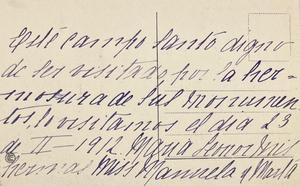 Este campo santo digno
de ser visitado por la her-
mosura de sus monumen-
tos, lo visitamos el dia 23
de II - 1912 Maria
Miss Manuela y Marta